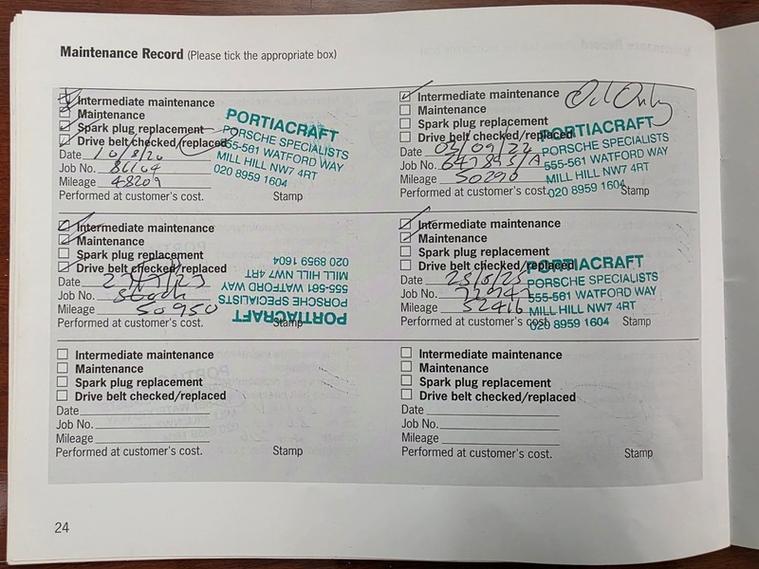 Maintenance Record (Please tick the appropriate box)
Intermediate maintenance
Maintenance
Spark plug replacement
Drive belt checked/replaced
Date 10/8/20
Job No. 86164
Mileage 48209
Performed at customer's cost. Stamp
PORTIACRAFT
PORSCHE SPECIALISTS
555-561 WATFORD WAY
MILL HILL NW7 4RT
020 8959 1604
Intermediate maintenance
Maintenance
Spark plug replacement
Drive belt checked/replaced
Date 02/09/22
Job No.
Mileage 50290
Performed at customer's cost. Stamp
Oil Only
PORTIACRAFT
PORSCHE SPECIALISTS
555-561 WATFORD WAY
MILL HILL NW7 4RT
020 8959 1604
Intermediate maintenance
Maintenance
Spark plug replacement
Drive belt checked/replaced
Date
Job No.
Mileage 50950
Performed at customer's cost. Stamp
PORTIACRAFT
PORSCHE SPECIALISTS
555-561 WATFORD WAY
MILL HILL NW7 4RT
020 8959 1604
Intermediate maintenance
Maintenance
Spark plug replacement
Drive belt checked/replaced
Date
Job No.
Mileage 52416
Performed at customer's cost. Stamp
PORTIACRAFT
PORSCHE SPECIALISTS
555-561 WATFORD WAY
MILL HILL NW7 4RT
020 8959 1604
Intermediate maintenance
Maintenance
Spark plug replacement
Drive belt checked/replaced
Date
Job No.
Mileage
Performed at customer's cost. Stamp
Intermediate maintenance
Maintenance
Spark plug replacement
Drive belt checked/replaced
Date
Job No.
Mileage
Performed at customer's cost. Stamp
24